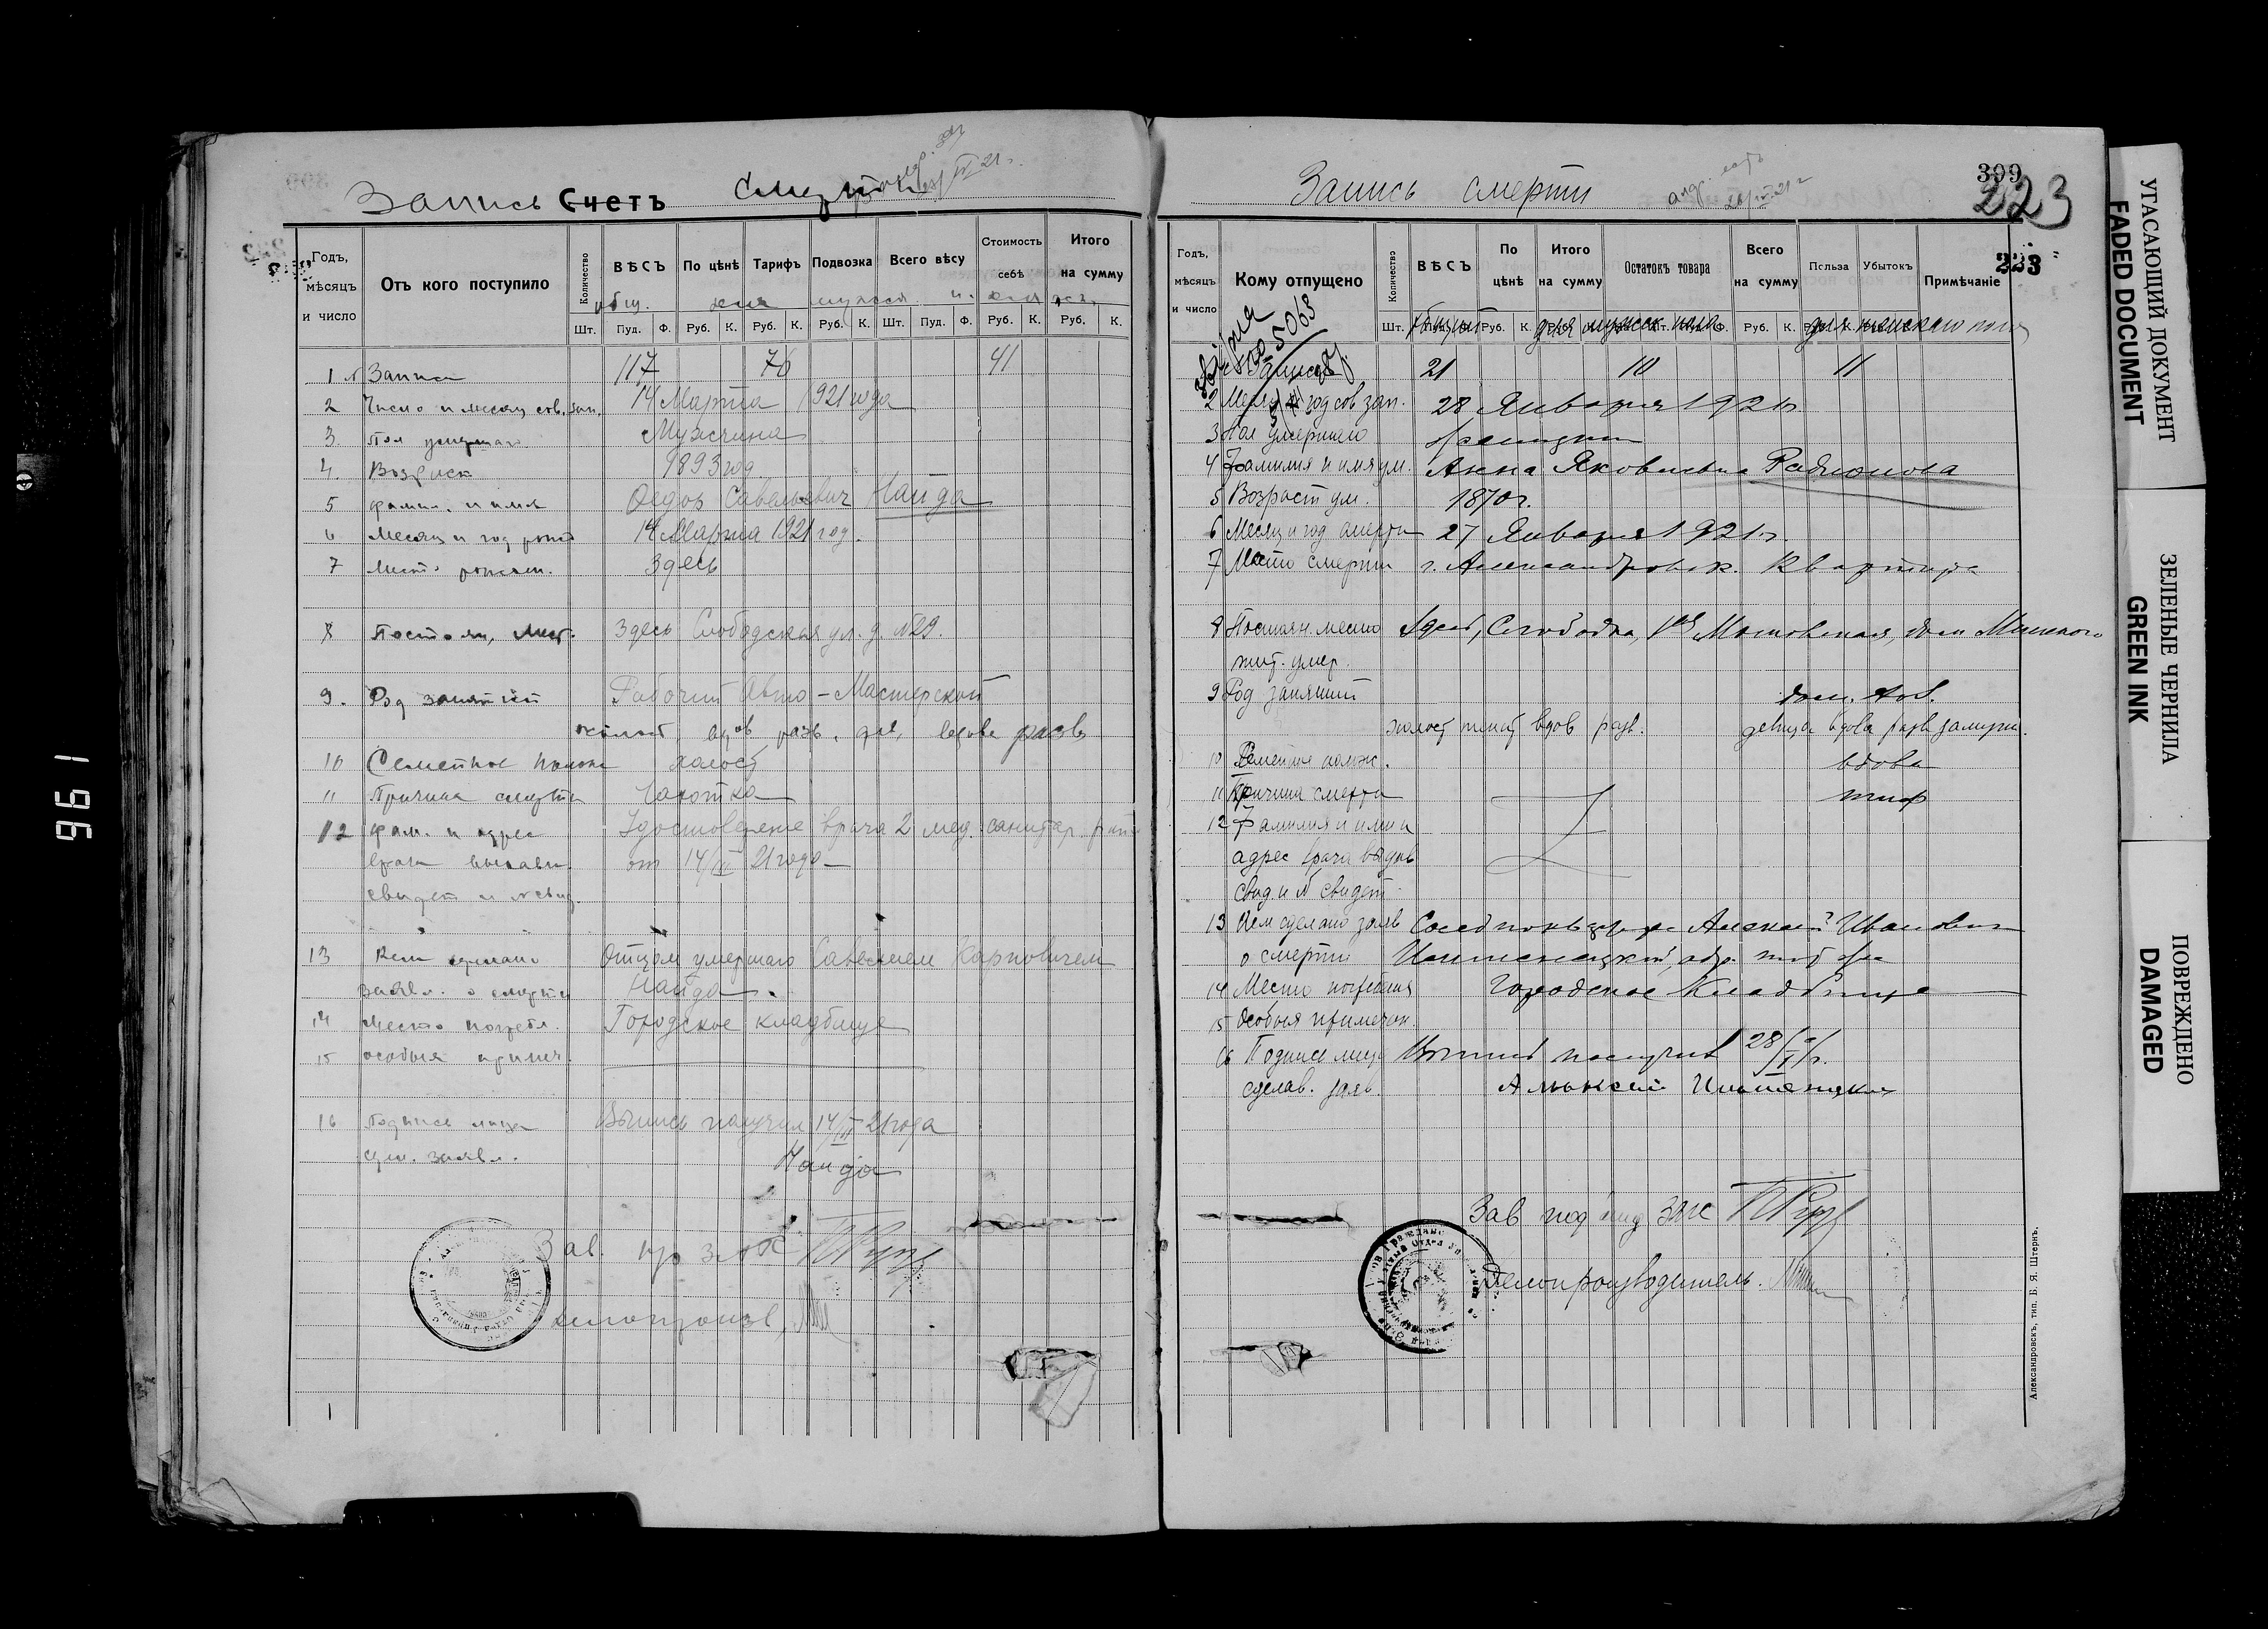 Запись Счетъ смерти
Годъ, мѣсяцъ и число
Отъ кого поступило
Количество
ВѢСЪ
По цѣнѣ
Тарифъ
Подвозка
Всего вѣсу
Стоимость себѣ
Итого на сумму
Шт. Пуд. Ф. Руб. К. Руб. К. Руб. К. Шт. Пуд. Ф. Руб. К. Руб. К.
1 № Записи 117 76 41
2 Число и месяц сов. зап. 14 Марта 1921 года
3. Пол умершаго Мужчина
4. Возраст 1893 год
5 фамил. и имя Федор Савельевич Найда
6 Месяц и год 14 Марта 1921 год.
7 Место Здесь
8 Постоян. мест. Здесь Слободская ул. д. №29.
9. Род занятий Рабочий Авто-Мастерской
холост вдов разв. дев. вдова разв
10 Семейное полож холост
11 Причина смерти Чахотка
12 фам. и адрес Удостоверение врача 2 мед. санитар.
врача выдавш. от 14/III 21 года
свидет и № свид.
13 Кем сделано Отцом умершаго Савелием Карповичем
заявл. о смерти Найда
14 Место погребл. Городское кладбище
15 особыя примеч.
16 Подпись лица Выпись получил 14/III 21 года
сдел. заявл. Найда
Зав. п/о ЗАГС
делопроизв.
Запись смерти
399
223
223
Годъ, мѣсяцъ и число
Кому отпущено
Количество
ВѢСЪ
По цѣнѣ
Итого на сумму
Остатокъ товара
Всего на сумму
Польза
Убытокъ
Примѣчаніе
общий для мужск пола для женскаго пола
5063
Записи 21 10 11
2 Месяц и год сов зап. 28 Января 1921 г.
3 Пол умершаго Женщина
4 Фамилия и имя ум. Анна Яковлевна Радионова
5 Возраст ум. 1870 г.
6 Месяц и год смерти 27 Января 1921 г.
7 Место смерти г. Александровск. Квартира
8 Постоян. место Здесь, Слободка, 1ая Московская, дом
жит. умер.
9 Род занятий
холост женат вдов разв. девица вдова разв замужн.
10 Семейное полож. вдова
11 Причина смерти тиф
12 Фамилия и имя и
адрес врача выдав
свид. и № свидет.
13 Кем сделано заяв Алексей Иванович
о смерти
14 Место погребения Городское Кладбище
15 Особыя примечан.
16 Подпись лица Выпись получил 28/I
сделав. заяв. Алексей
Зав под отд ЗАГС
Делопроизводитель.
Александровскъ, тип. Б. Я. Штернъ.
УГАСАЮЩИЙ ДОКУМЕНТ
FADED DOCUMENT
ЗЕЛЕНЫЕ ЧЕРНИЛА
GREEN INK
ПОВРЕЖДЕНО
DAMAGED
961